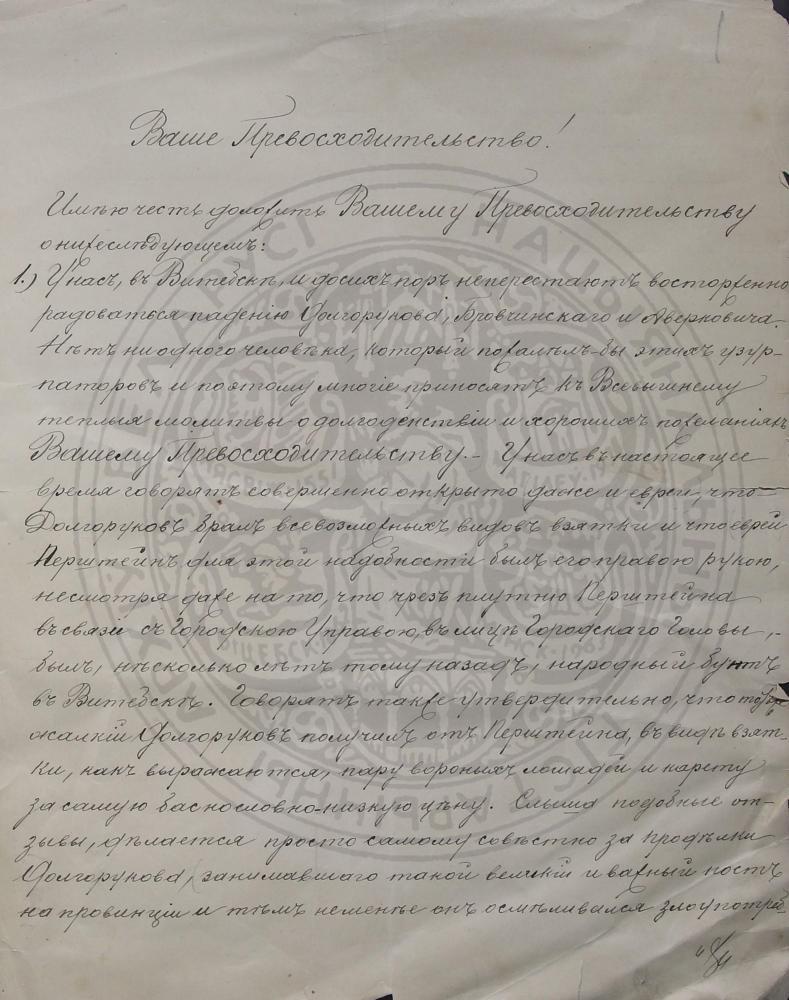 Ваше Превосходительство!
Имѣю честь доложить Вашему Превосходительству
о нижеслѣдующемъ:
1.) У насъ, въ Витебскѣ, и до сихъ поръ неперестаютъ восторженно
радоваться паденію Долгорукова, Бровчинскаго и Аверковича.
Нѣтъ ни одного человѣка, который пожалѣлъ-бы этихъ узур-
паторовъ и поэтому многіе приносятъ къ Всевышнему
теплыя молитвы о долгоденствіи и хорошихъ пожеланіяхъ
Вашему Превосходительству. – У насъ въ настоящее
время говорятъ совершенно открыто даже и евреи, что
Долгоруковъ бралъ всевозможныхъ видовъ взятки и что еврей
Перштейнъ для этой надобности былъ его правою рукою,
несмотря даже на то, что чрезъ плутню Перштейна
въ связи съ Городскою Управою, въ лицѣ Городскаго Головы, -
былъ, нѣсколько лѣтъ тому назадъ, народный бунтъ
въ Витебскѣ. Говорятъ также утвердительно, что
жалкій Долгоруковъ получилъ отъ Перштейна, въ видѣ взят-
ки, какъ выражаются, пару вороныхъ лошадей и карету
за самую баснословно-низкую цѣну. Слыша подобные от-
зывы, дѣлается просто самому совѣстно за продѣлки
Долгорукова, занимавшаго такой великій и важный постъ
на провинціи и тѣмъ неменѣе онъ осмѣливался злоупотреб-